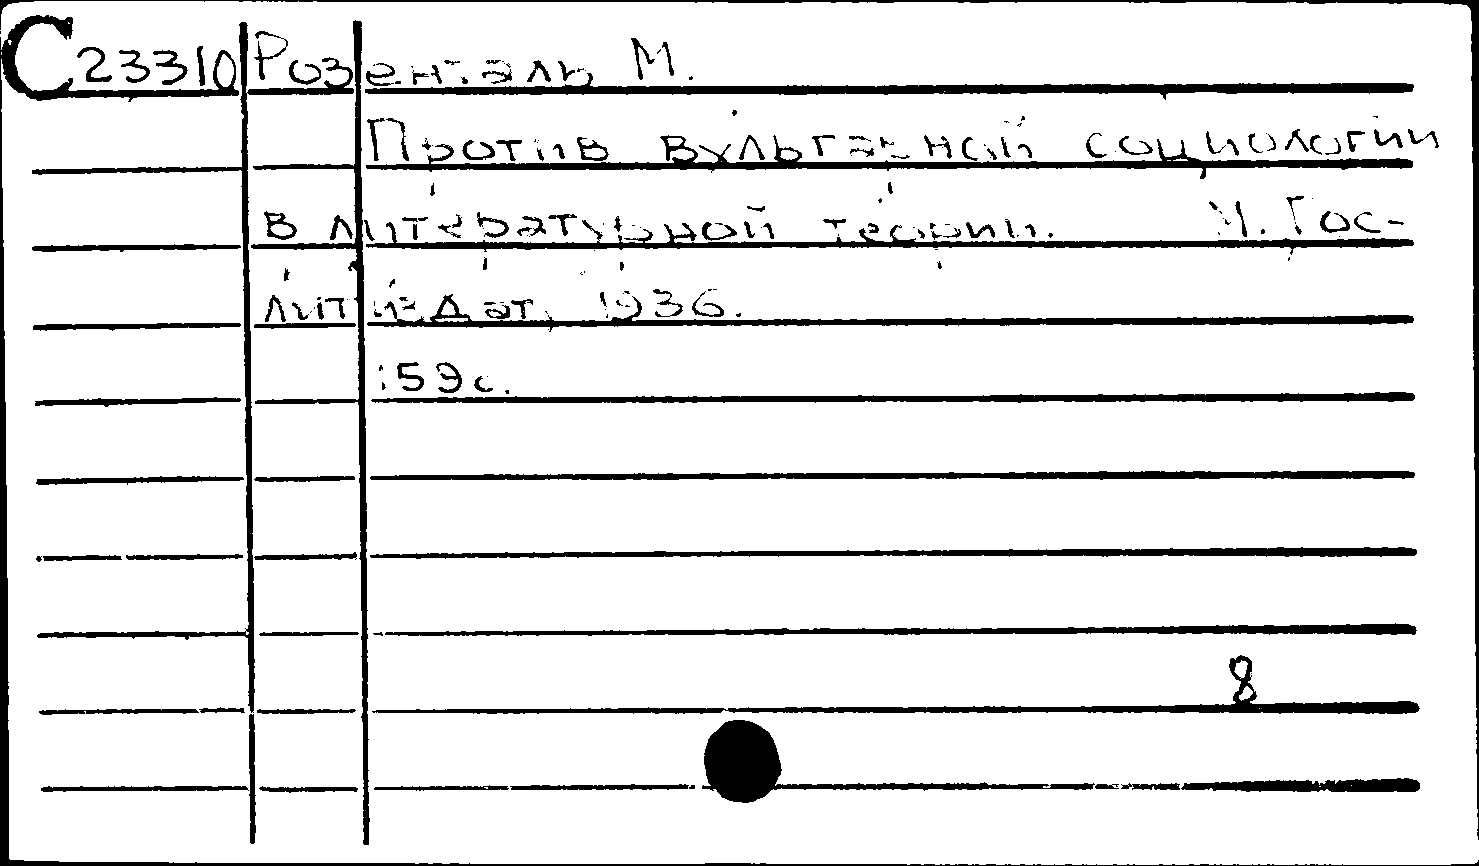 С23310 Розенталь М.
Против вульгарной социологии
в литературной теории. М. Гос-
литиздат, 1936.
159с.
8